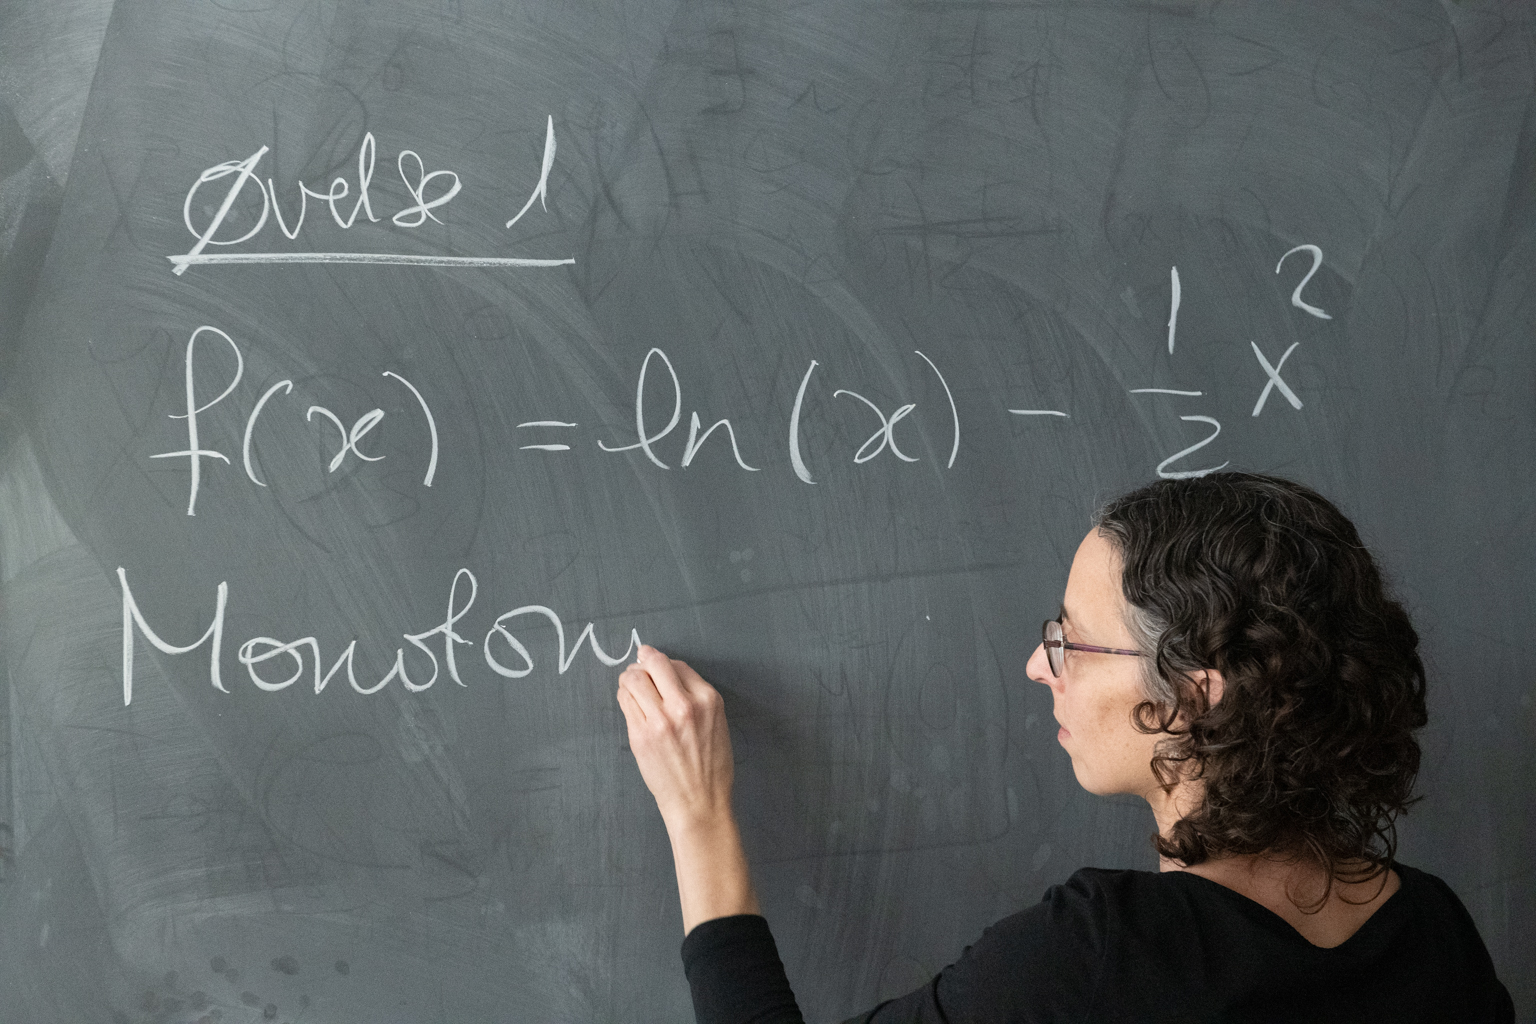 Øvelse 1
f(x) = ln(x) - 1/2 x²
Monotoni